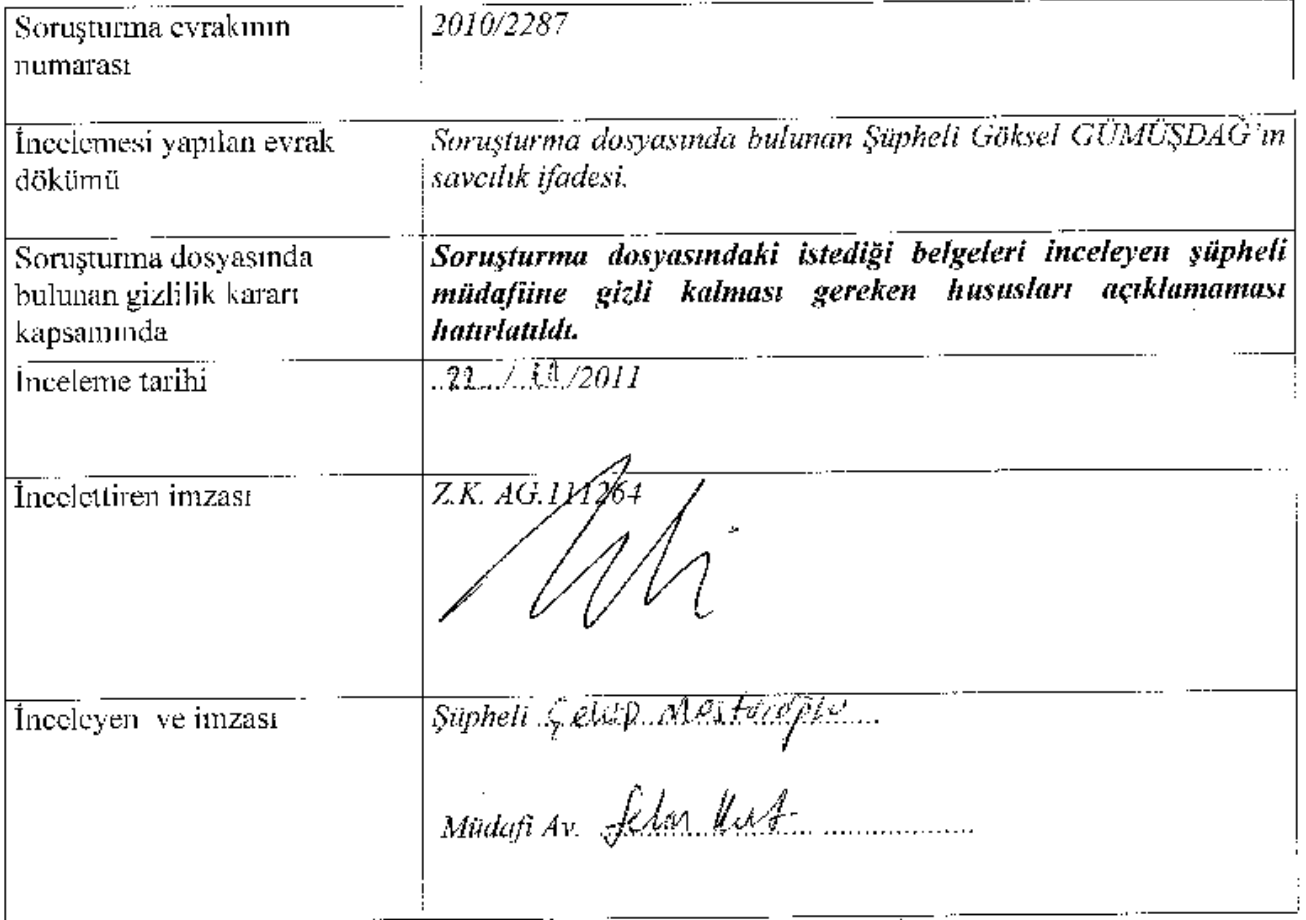 Soruşturma evrakının
numarası
2010/2287
İncelemesi yapılan evrak
dökümü
Soruşturma dosyasında bulunan Şüpheli Göksel GÜMÜŞDAĞ'ın
savcılık ifadesi.
Soruşturma dosyasında
bulunan gizlilik kararı
kapsamında
Soruşturma dosyasındaki istediği belgeleri inceleyen şüpheli
müdafiine gizli kalması gereken hususları açıklamaması
hatırlatıldı.
İnceleme tarihi
/2011
İncelettiren imzası
Z.K. AG.111264
İnceleyen ve imzası
Şüpheli
Müdafi Av.